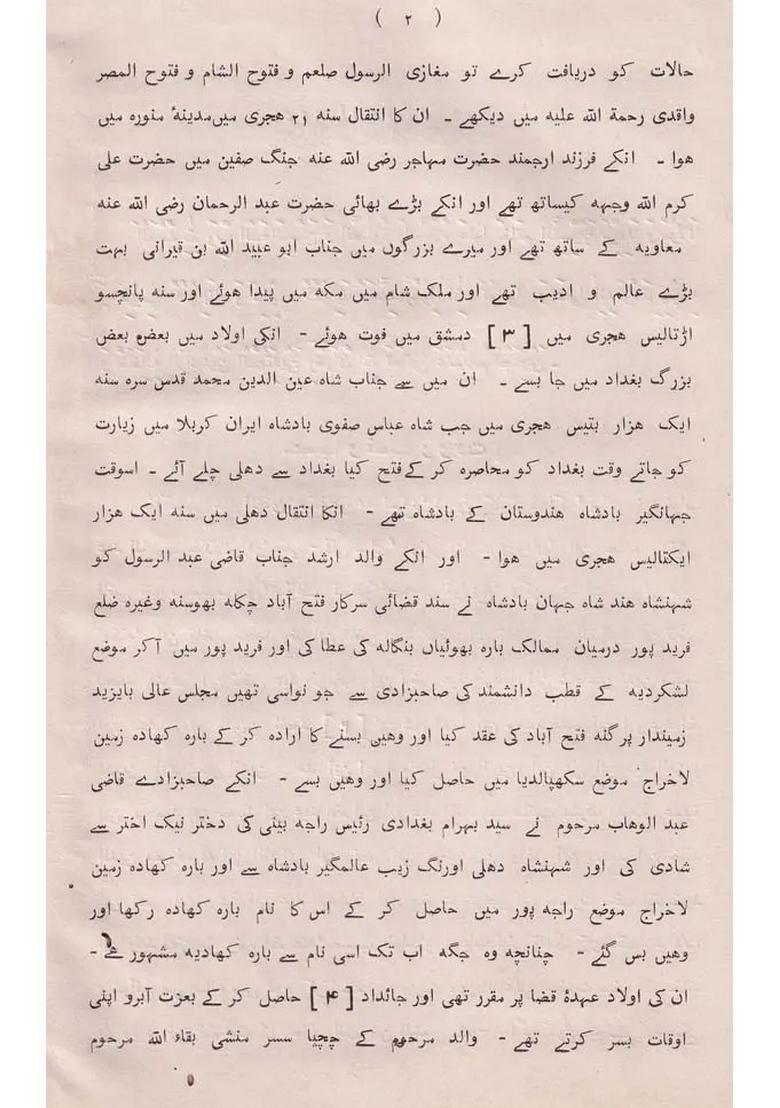 ( ۲ )
حالات کو دریافت کرے تو مغازی الرسول صلعم و فتوح الشام و فتوح المصر
واقدی رحمة اللہ علیہ میں دیکھے ـ ان کا انتقال سنہ ۲۱ ھجری میں مدینۂ منورہ میں
ھوا ـ انکے فرزند ارجمند حضرت مہاجر رضی اللہ عنہ جنگ صفین میں حضرت علی
کرم اللہ وجہہ کیساتھ تھے اور انکے بڑے بھائی حضرت عبد الرحمان رضی اللہ عنہ
معاویہ کے ساتھ تھے اور میرے بزرگوں میں جناب ابو عبید اللہ بن قیرانی بہت
بڑے عالم و ادیب تھے اور ملک شام میں مکہ میں پیدا ھوئے اور سنہ پانچسو
اڑتالیس ھجری میں [ ۳ ] دمشق میں فوت ھوئے - انکی اولاد میں بعض بعض
بزرگ بغداد میں جا بسے ـ ان میں سے جناب شاہ عین الدین محمد قدس سرہ سنہ
ایک ھزار بتیس ھجری میں جب شاہ عباس صفوی بادشاہ ایران کربلا میں زیارت
کو جاتے وقت بغداد کو محاصرہ کر کے فتح کیا بغداد سے دھلی چلے آئے ـ اسوقت
جہانگیر بادشاہ ھندوستان کے بادشاہ تھے - انکا انتقال دھلی میں سنہ ایک ھزار
ایکتالیس ھجری میں ھوا - اور انکے والد ارشد جناب قاضی عبد الرسول کو
شہنشاہ ھند شاہ جہان بادشاہ نے سند قضائی سرکار فتح آباد چکلہ بھوسنہ وغیرہ ضلع
فرید پور درمیان ممالک بارہ بھوئیاں بنگالہ کی عطا کی اور فرید پور میں آکر موضع
لشکردیہ کے قطب دانشمند کی صاحبزادی سے جو نواسی تھیں مجلس عالی بایزید
زمیندار پرگنہ فتح آباد کی عقد کیا اور وھیں بسنے کا ارادہ کر کے بارہ کھادہ زمین
لاخراج موضع سکھپالدیا میں حاصل کیا اور وھیں بسے - انکے صاحبزادے قاضی
عبد الوھاب مرحوم نے سید بہرام بغدادی رئیس راجہ بینی کی دختر نیک اختر سے
شادی کی اور شہنشاہ دھلی اورنگ زیب عالمگیر بادشاہ سے اور بارہ کھادہ زمین
لاخراج موضع راجہ پور میں حاصل کر کے اس کا نام بارہ کھادہ رکھا اور
وھیں بس گئے - چنانچہ وہ جگہ اب تک اسی نام سے بارہ کھادیہ مشہور ھے -
ان کی اولاد عہدۂ قضا پر مقرر تھی اور جائداد [ ۴ ] حاصل کر کے بعزت آبرو اپنی
اوقات بسر کرتے تھے - والد مرحوم کے چچیا سسر منشی بقاء اللہ مرحوم